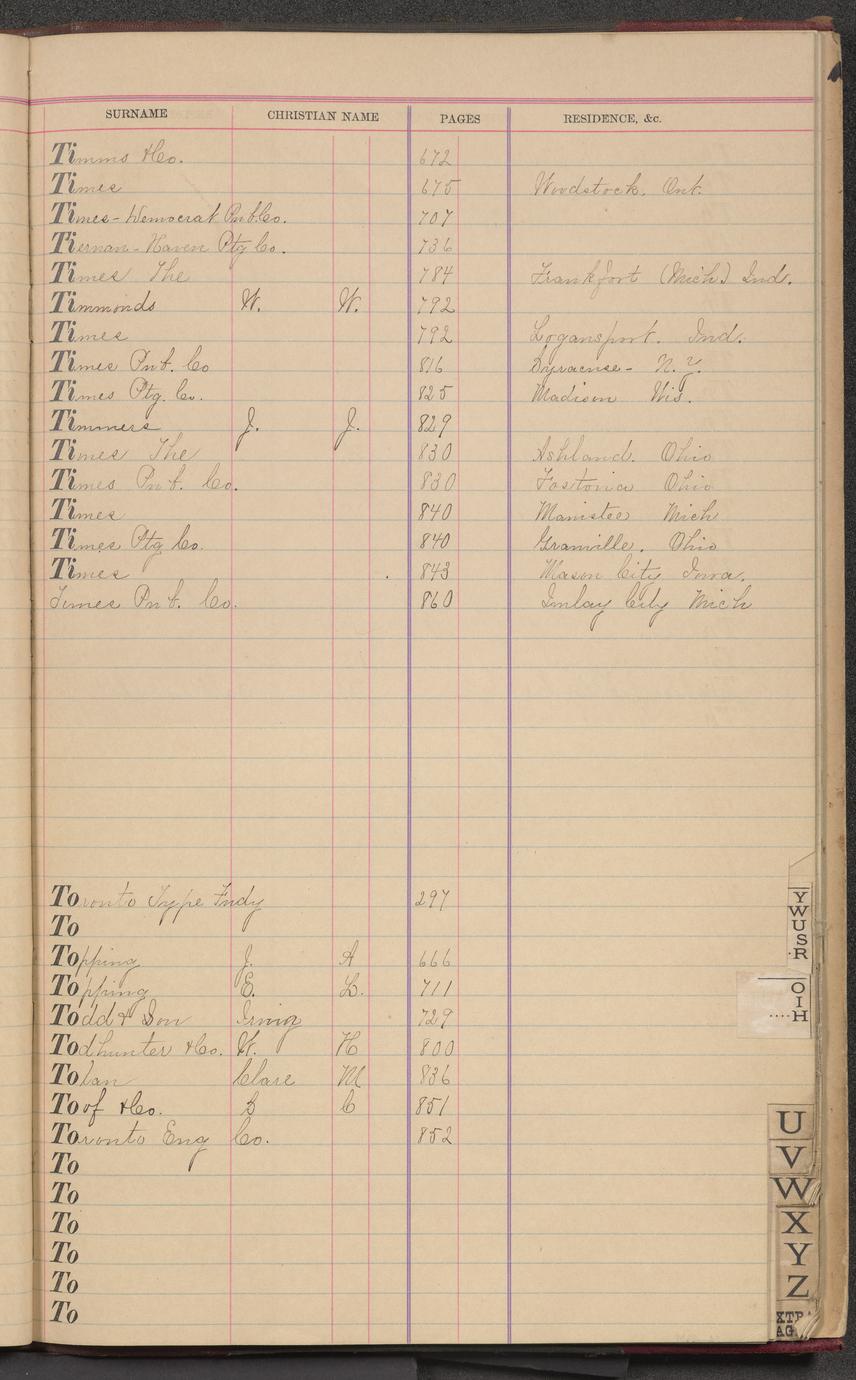 SURNAME CHRISTIAN NAME PAGES RESIDENCE, &c.
Timms & Co. 672
Times 675 Woodstock. Ont.
Times-Democrat Pub. Co. 707
Tiernan-Haven Ptg Co. 736
Times The 784 Frankfort (Mich) Ind.
Timmonds W. W. 792
Times 792 Logansport. Ind.
Times Pub. Co 816 Syracuse - N. Y.
Times Ptg. Co. 825 Madison Wis.
Timmers J. J. 829
Times The 830 Ashland. Ohio
Times Pub. Co. 830 Fostoria Ohio
Times 840 Manistee Mich
Times Ptg Co. 840 Granville. Ohio
Times 843 Mason City Iowa.
Times Pub. Co. 860 Imlay City Mich
Toronto Type Fndy 297
To
Topping J. A 666
Topping E. L. 711
Todd & Son Irving 729
Todhunter & Co. W. H 800
Tolan Clare M 836
Toof & Co. S C 851
Toronto Eng Co. 852
To
To
To
To
To
To
Y
W
U
S
R
O
I
H
U
V
W
X
Y
Z